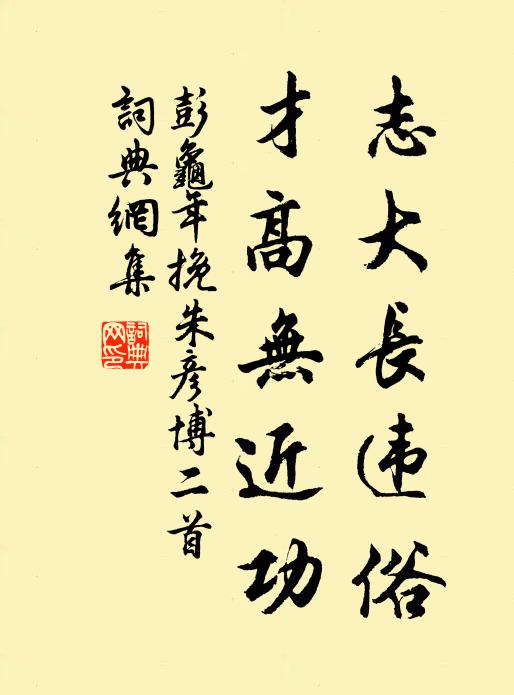 志大長违俗
才高無近功
彭龜年挽朱彥博二首
詞典網集
詞典
网印